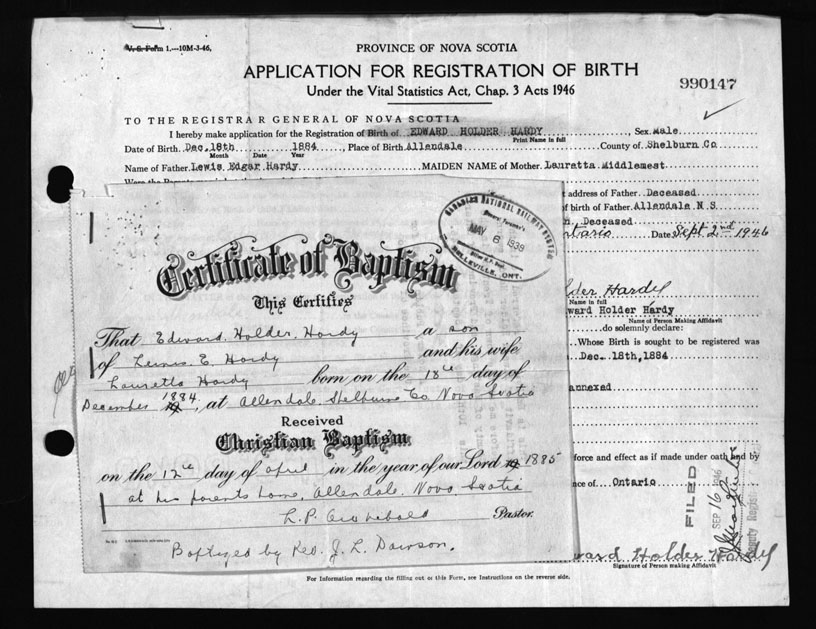 V. S. Form 1.—10M-3-46.
PROVINCE OF NOVA SCOTIA
APPLICATION FOR REGISTRATION OF BIRTH
Under the Vital Statistics Act, Chap. 3 Acts 1946
990147
TO THE REGISTRAR GENERAL OF NOVA SCOTIA
I hereby make application for the Registration of Birth of EDWARD HOLDER HARDY, Sex Male
Print Name in full
Date of Birth Dec. 18th 1884, Place of Birth Allendale County of Shelburn Co
Month Date Year
Name of Father Lewis Edgar Hardy MAIDEN NAME of Mother Lauretta Middlemest
address of Father Deceased
of birth of Father Allendale N S
Deceased
Ontario Date Sept 2nd 1946
lder Hardy
Name in full
ward Holder Hardy
Name of Person Making Affidavit
do solemnly declare:
Whose Birth is sought to be registered was
Dec. 18th, 1884
annexed
force and effect as if made under oath and by
nce of Ontario
FILED
SEP 16 1946
ward Holder Hardy
Signature of Person making Affidavit
For Information regarding the filling out of this Form, see Instructions on the reverse side.
CANADIAN NATIONAL RAILWAY SYSTEM
MAY 6 1939
BELLEVILLE, ONT.
Certificate of Baptism
This Certifies
That Edward Holder Hardy a son
of Lewis E. Hardy and his wife
Lauretta Hardy born on the 18th day of
December 1884, at Allendale Shelburne Co Nova Scotia
Received
Christian Baptism
on the 12th day of April in the year of our Lord 1885
at his parents home, Allendale, Nova Scotia
L. P. Archibald Pastor.
Baptized by Rev. J. L. Dawson.